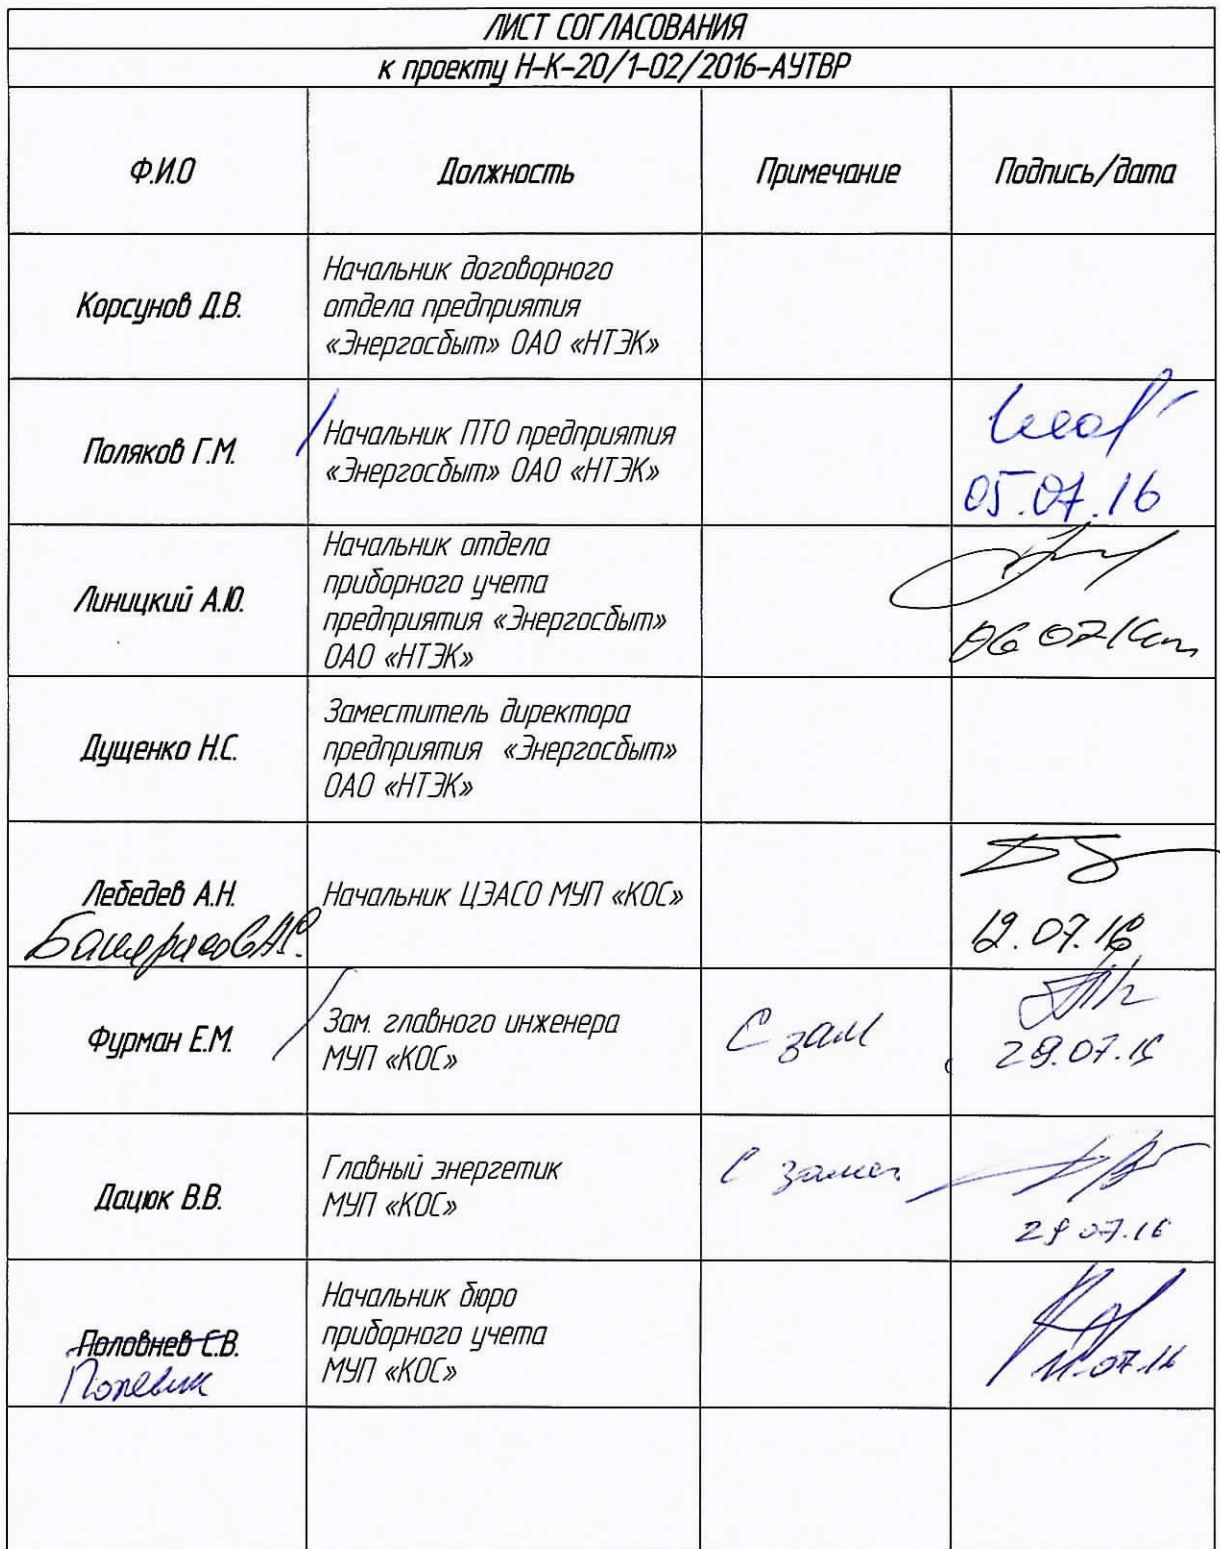 ЛИСТ СОГЛАСОВАНИЯ
к проекту Н-К-20/1-02/2016-АУТВР
Ф.И.О
Должность
Примечание
Подпись/дата
Корсунов Д.В.
Начальник договорного
отдела предприятия
«Энергосбыт» ОАО «НТЭК»
Поляков Г.М.
Начальник ПТО предприятия
«Энергосбыт» ОАО «НТЭК»
05.07.16
Линицкий А.Ю.
Начальник отдела
приборного учета
предприятия «Энергосбыт»
ОАО «НТЭК»
06 07 16
Дущенко Н.С.
Заместитель директора
предприятия «Энергосбыт»
ОАО «НТЭК»
Лебедев А.Н.
Начальник ЦЭАСО МУП «КОС»
12.07.16
Фурман Е.М.
Зам. главного инженера
МУП «КОС»
С зам
29.07.16
Дацюк В.В.
Главный энергетик
МУП «КОС»
С замеч
29 07.16
Половнев С.В.
Начальник бюро
приборного учета
МУП «КОС»
11.07.16